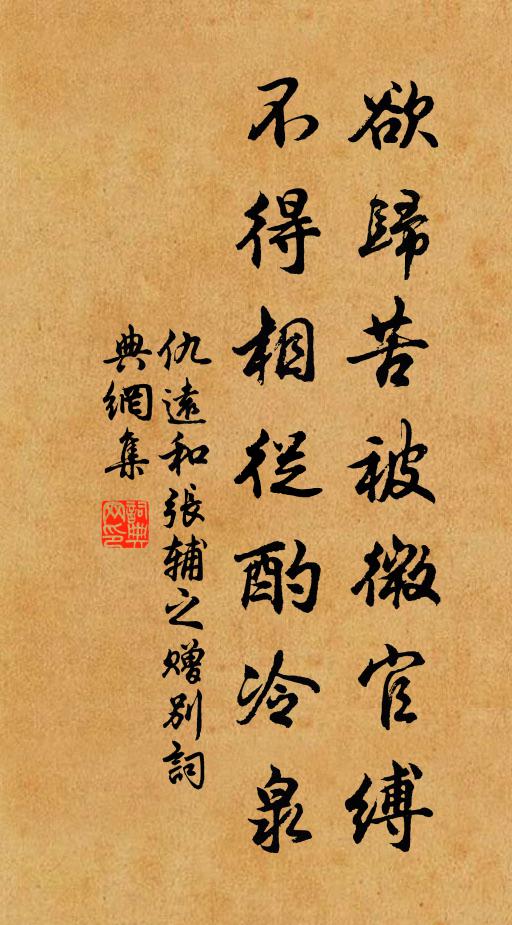 欲歸苦被微官縛
不得相從酌冷泉
仇遠和張辅之赠别詞
典網集
詞典网印